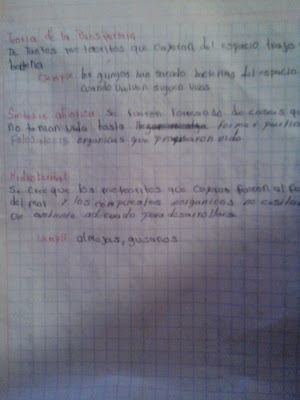 Teoria de la Panspermia
De tantos meteoritos que cayeron del espacio trajo
bacteria
Ejemplo: los gringos han sacado bacterias del espacio
cuando vuelven siguen vivas
Sintesis abiotica: Se fueron formando de cosas que
no tenian vida hasta formar particulas
organicas que vida
Hidrotermal
Se cree que los meteoritos que cayeron fueron al fondo
del mar y los compuestos inorganicos
un ambiente adecuado para desarrollarse
Ejempl: almejas, gusanos